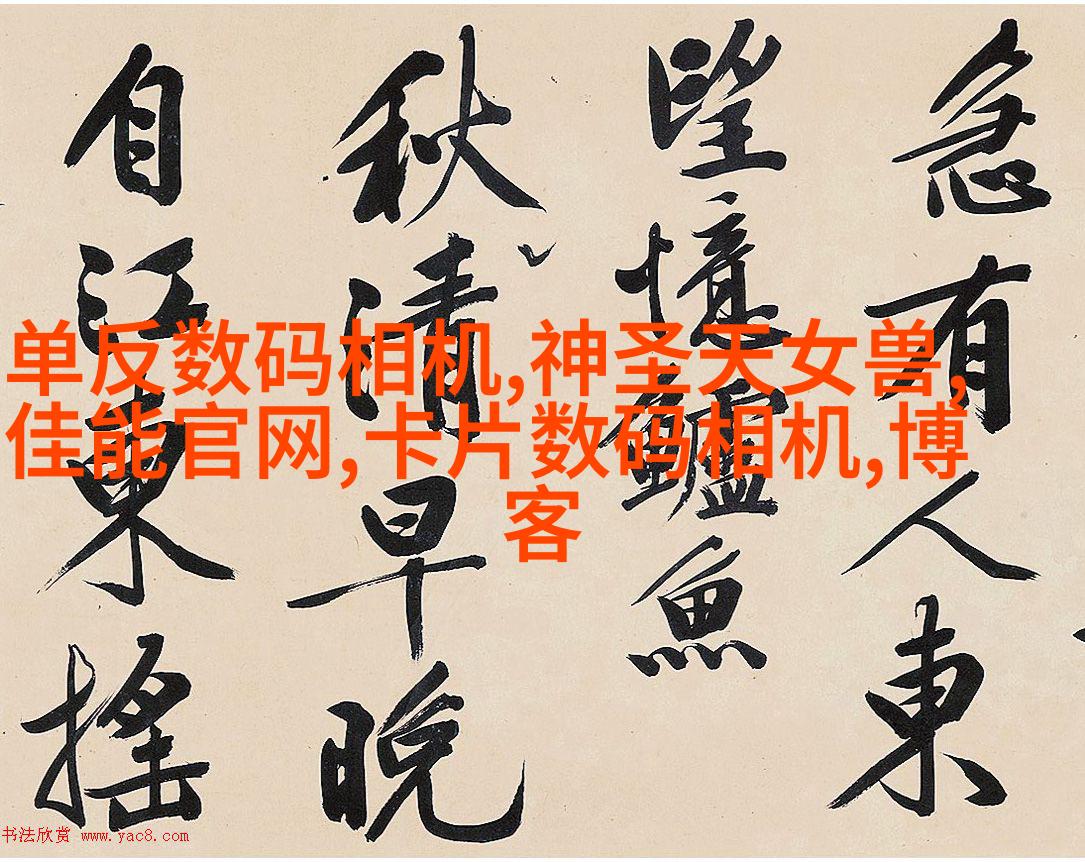 急有人東
望憶鱸魚
秋清早晚
自江東搖
单反数码相机,神圣天女兽,
佳能官网,卡片数码相机,博
客
书法欣赏 www.yac8.com